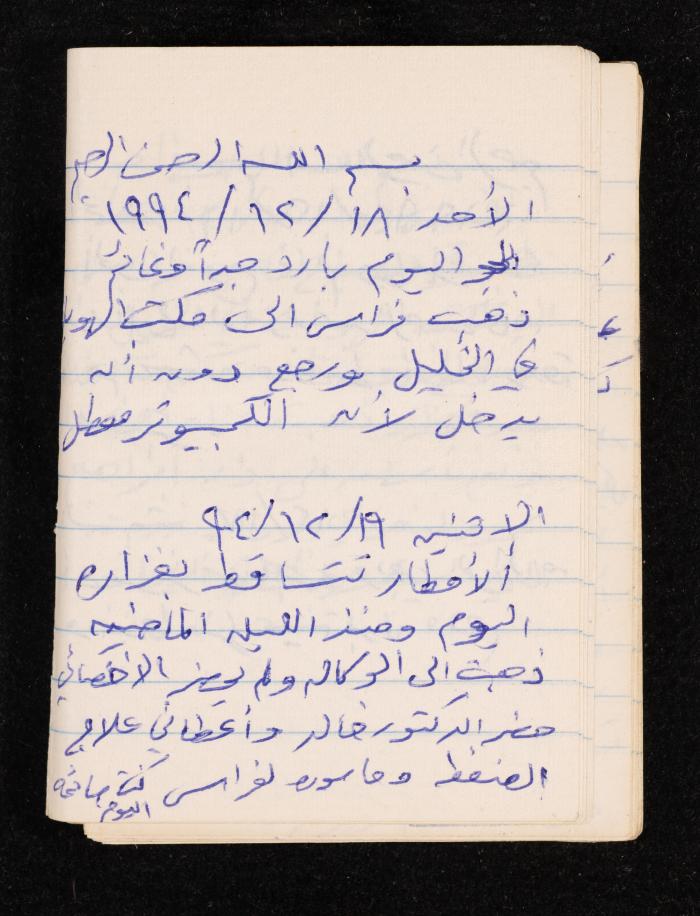 بسم الله الرحمن الرحيم
الأحد ١٨/١٢/١٩٩٤
الجو اليوم بارد جداً وغائم
ذهب فراس الى مكتب الهويا
في الخليل ورجع دون أن
يدخل لأن الكمبيوتر معطل
الاثنين ١٩/١٢/٩٤
الأمطار تتساقط بغزاره
اليوم ومنذ الليله الماضيه
ذهبت الى الوكاله ولم يحضر الاخصائي
حضر الدكتور خالد وأعطاني علاج
الضغط لفراس كنت صائمة
اليوم